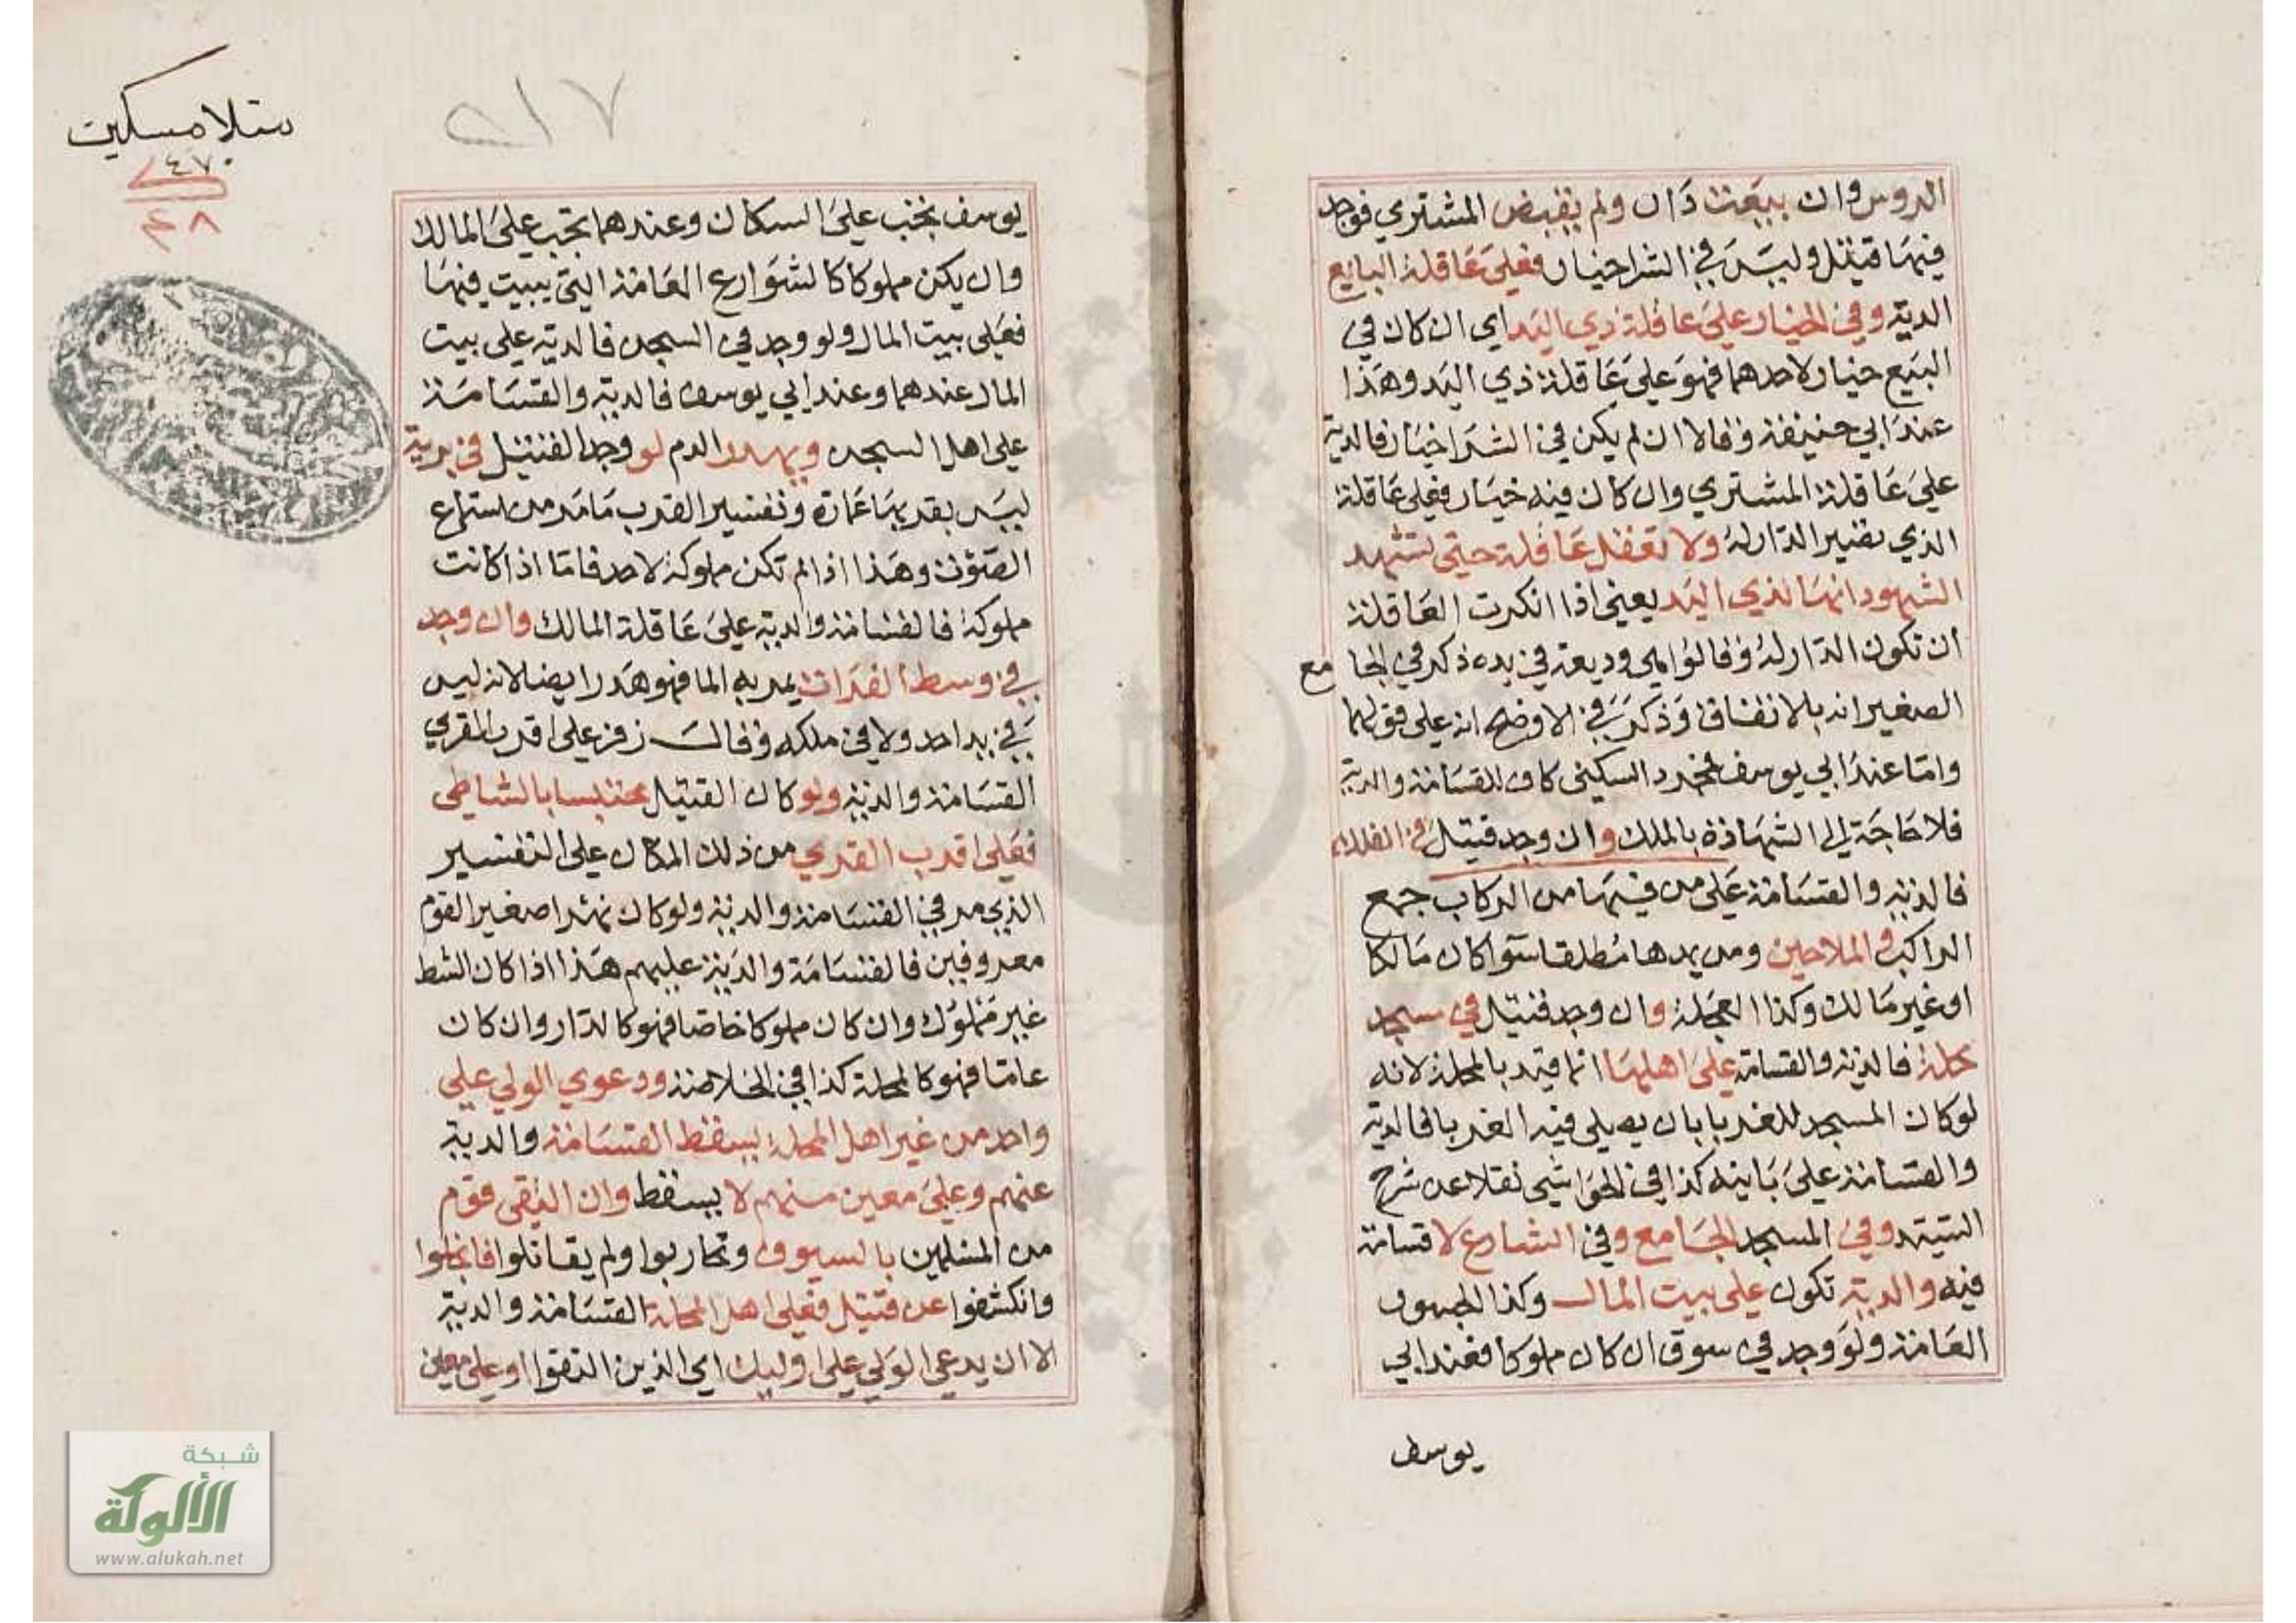 الروس وان بيعت دار ولم يقبض المشتري فوجد
فيها قتيل وليس في الشرا خيار فعلى عاقلة البايع
الدية وفي الخيار على عاقلة ذي اليد اي ان كان في
البيع خيار لاحدهما فهو على عاقلة ذي اليد وهذا
عند ابي حنيفة وقالا ان لم يكن في الشرا خيار فالدية
على عاقلة المشتري وان كان فيه خيار فعلى عاقلة
الذي تصير الدار له ولا تعقل عاقلة حتى تشهد
الشهود انها لذي اليد يعني اذا انكرت العاقلة
ان تكون الدار له وقالوا هي وديعة في يده ذكر في الجامع
الصغير انه بالاتفاق وذكر في الاوضح انه على قولهما
واما عند ابي يوسف فمجرد السكنى كاف للقسامة والدية
فلا حاجة الى الشهادة بالملك وان وجد قتيل في الفلك
فالدية والقسامة على من فيها من الركاب جمع
الراكب والملاحين ومن يمدها مطلقا سوا كان مالكا
او غير مالك وكذا العجلة وان وجد قتيل في مسجد
محلة فالدية والقسامة على اهلها انما قيد بالمحلة لانه
لو كان المسجد للغربا بان يصلي فيه الغربا فالدية
والقسامة على بانيه كذا في الحواشي نقلا عن شرح
السيد وفي المسجد الجامع وفي الشارع لا قسامة
فيه والدية تكون على بيت المال وكذا الجسور
العامة ولو وجد في سوق ان كان مملوكا فعند ابي
يوسف
منلا مسكين
٤٧
ك
٤٨
٢١٧
يوسف تجب على السكان وعندهما تجب على المالك
وان يكن مملوكا كالشوارع العامة التي يبيت فيها
فعلى بيت المال ولو وجد في السجن فالدية على بيت
المال عندهما وعند ابي يوسف فالدية والقسامة
على اهل السجن ويهدر الدم لو وجد القتيل في برية
ليس بقربها عمارة وتفسير القرب ما مر من استماع
الصوت وهذا اذا لم تكن مملوكة لاحد فاما اذا كانت
مملوكة فالقسامة والدية على عاقلة المالك وان وجد
في وسط الفرات يمر به الما فهو هدر ايضا لانه ليس
في يد احد ولا في ملكه وقال زفر على اقرب القرى
القسامة والدية ولو كان القتيل محتبسا بالشاطي
فعلى اقرب القرى من ذلك المكان على التفسير
الذي مر في القسامة والدية ولو كان نهرا صغيرا لقوم
معروفين فالقسامة والدية عليهم هذا اذا كان الشط
غير مملوك وان كان مملوكا خاصا فهو كالدار وان كان
عاما فهو كالمحلة كذا في الخلاصة ودعوي الولي على
واحد من غير اهل المحلة يسقط القسامة والدية
عنهم وعلى معين منهم لا يسقط وان التقى قوم
من المسلمين بالسيوف وتحاربوا ولم يقاتلوا فانجلوا
وانكشفوا عن قتيل فعلى اهل المحلة القسامة والدية
الا ان يدعي الولي على اوليك اي الذين التقوا او على معين
شبكة
الألوكة
www.alukah.net